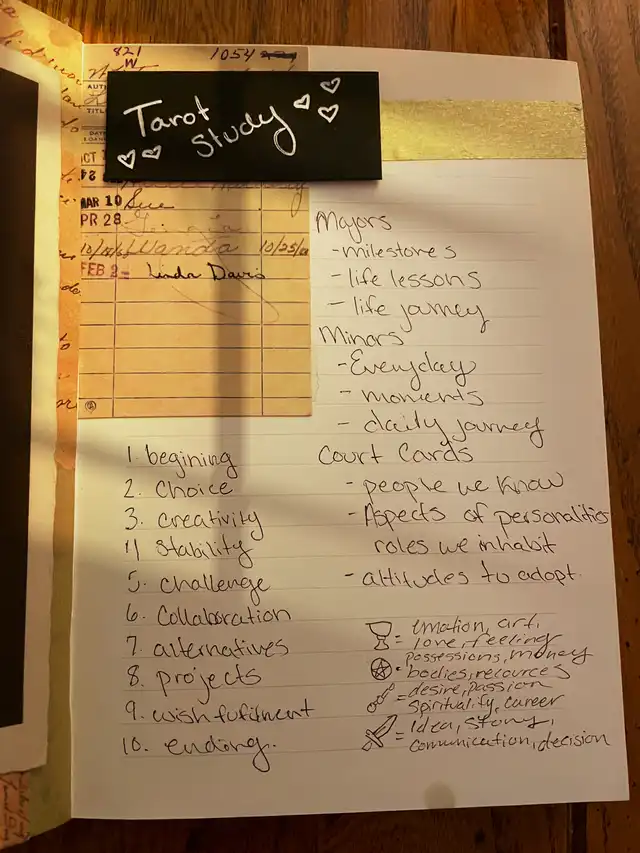 821
W
1054
AUTH
TITL
Tarot
Study
DATE
LOANED
OCT
MAR 10 Sue
APR 28
Wanda 10/25/
FEB 2 Linda Davis
Majors
- milestones
- life lessons
- life jorney
Minors
- Everyday
- moments
- daily journey
Court Cards
- people we know
- Aspects of personalities
roles we inhabit
- attitudes to adopt.
1. begining
2. Choice
3. creativity
4 Stability
5. challenge
6. Collaboration
7. alternatives
8. projects
9. wish fufilment
10. ending.
= emotion, art,
love, feeling
possessions, money
bodies, recources
= desire, passion
Spirituality, career
= Idea, Story,
comunication, decision